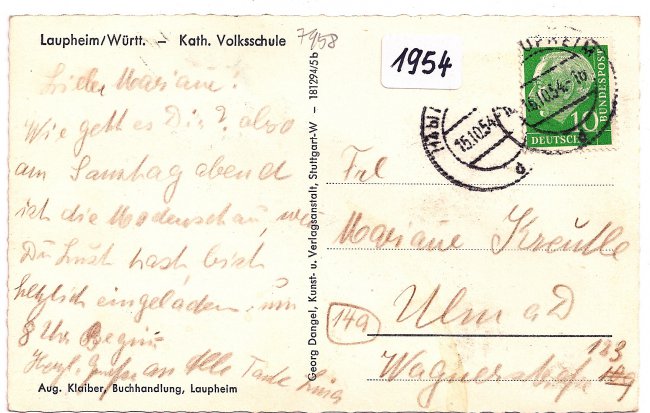 Laupheim/Württ. – Kath. Volksschule
7958
Liebe Mariane!
Wie geht es Dir? also
am Samstag abend
ist die Modenschau, wenn
Du Lust hast bist
herzlich eingeladen, um
8 Uhr Beginn
Herzl. Grüße an alle Tante
Aug. Klaiber, Buchhandlung, Laupheim
Georg Dangel, Kunst- u. Verlagsanstalt, Stuttgart-W – 181294/5b
1954
LAUPHEIM
16.10.54
(14b)
16.10.54
d
10
DEUTSCHE BUNDESPOST
Frl
Mariane Kreutle
14a
Ulm a D
Wagnerstr
123